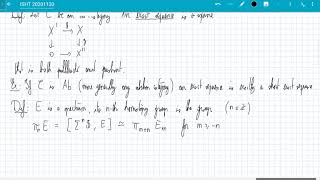 ISHT 20201130
Def: Let C be an ∞-category. An exact sequence is a square
X' → X
↓ ↓
0 → X''
that is both pullback and pushout.
If C is Ab (more generally any abelian category) an exact sequence is exactly a short exact sequence
Def: E is a spectrum, its n-th homotopy group is the group (n∈ℤ)
π_n E = [Σ^n 𝕊, E] ≃ π_{m+n} E_m for m ≥ -n